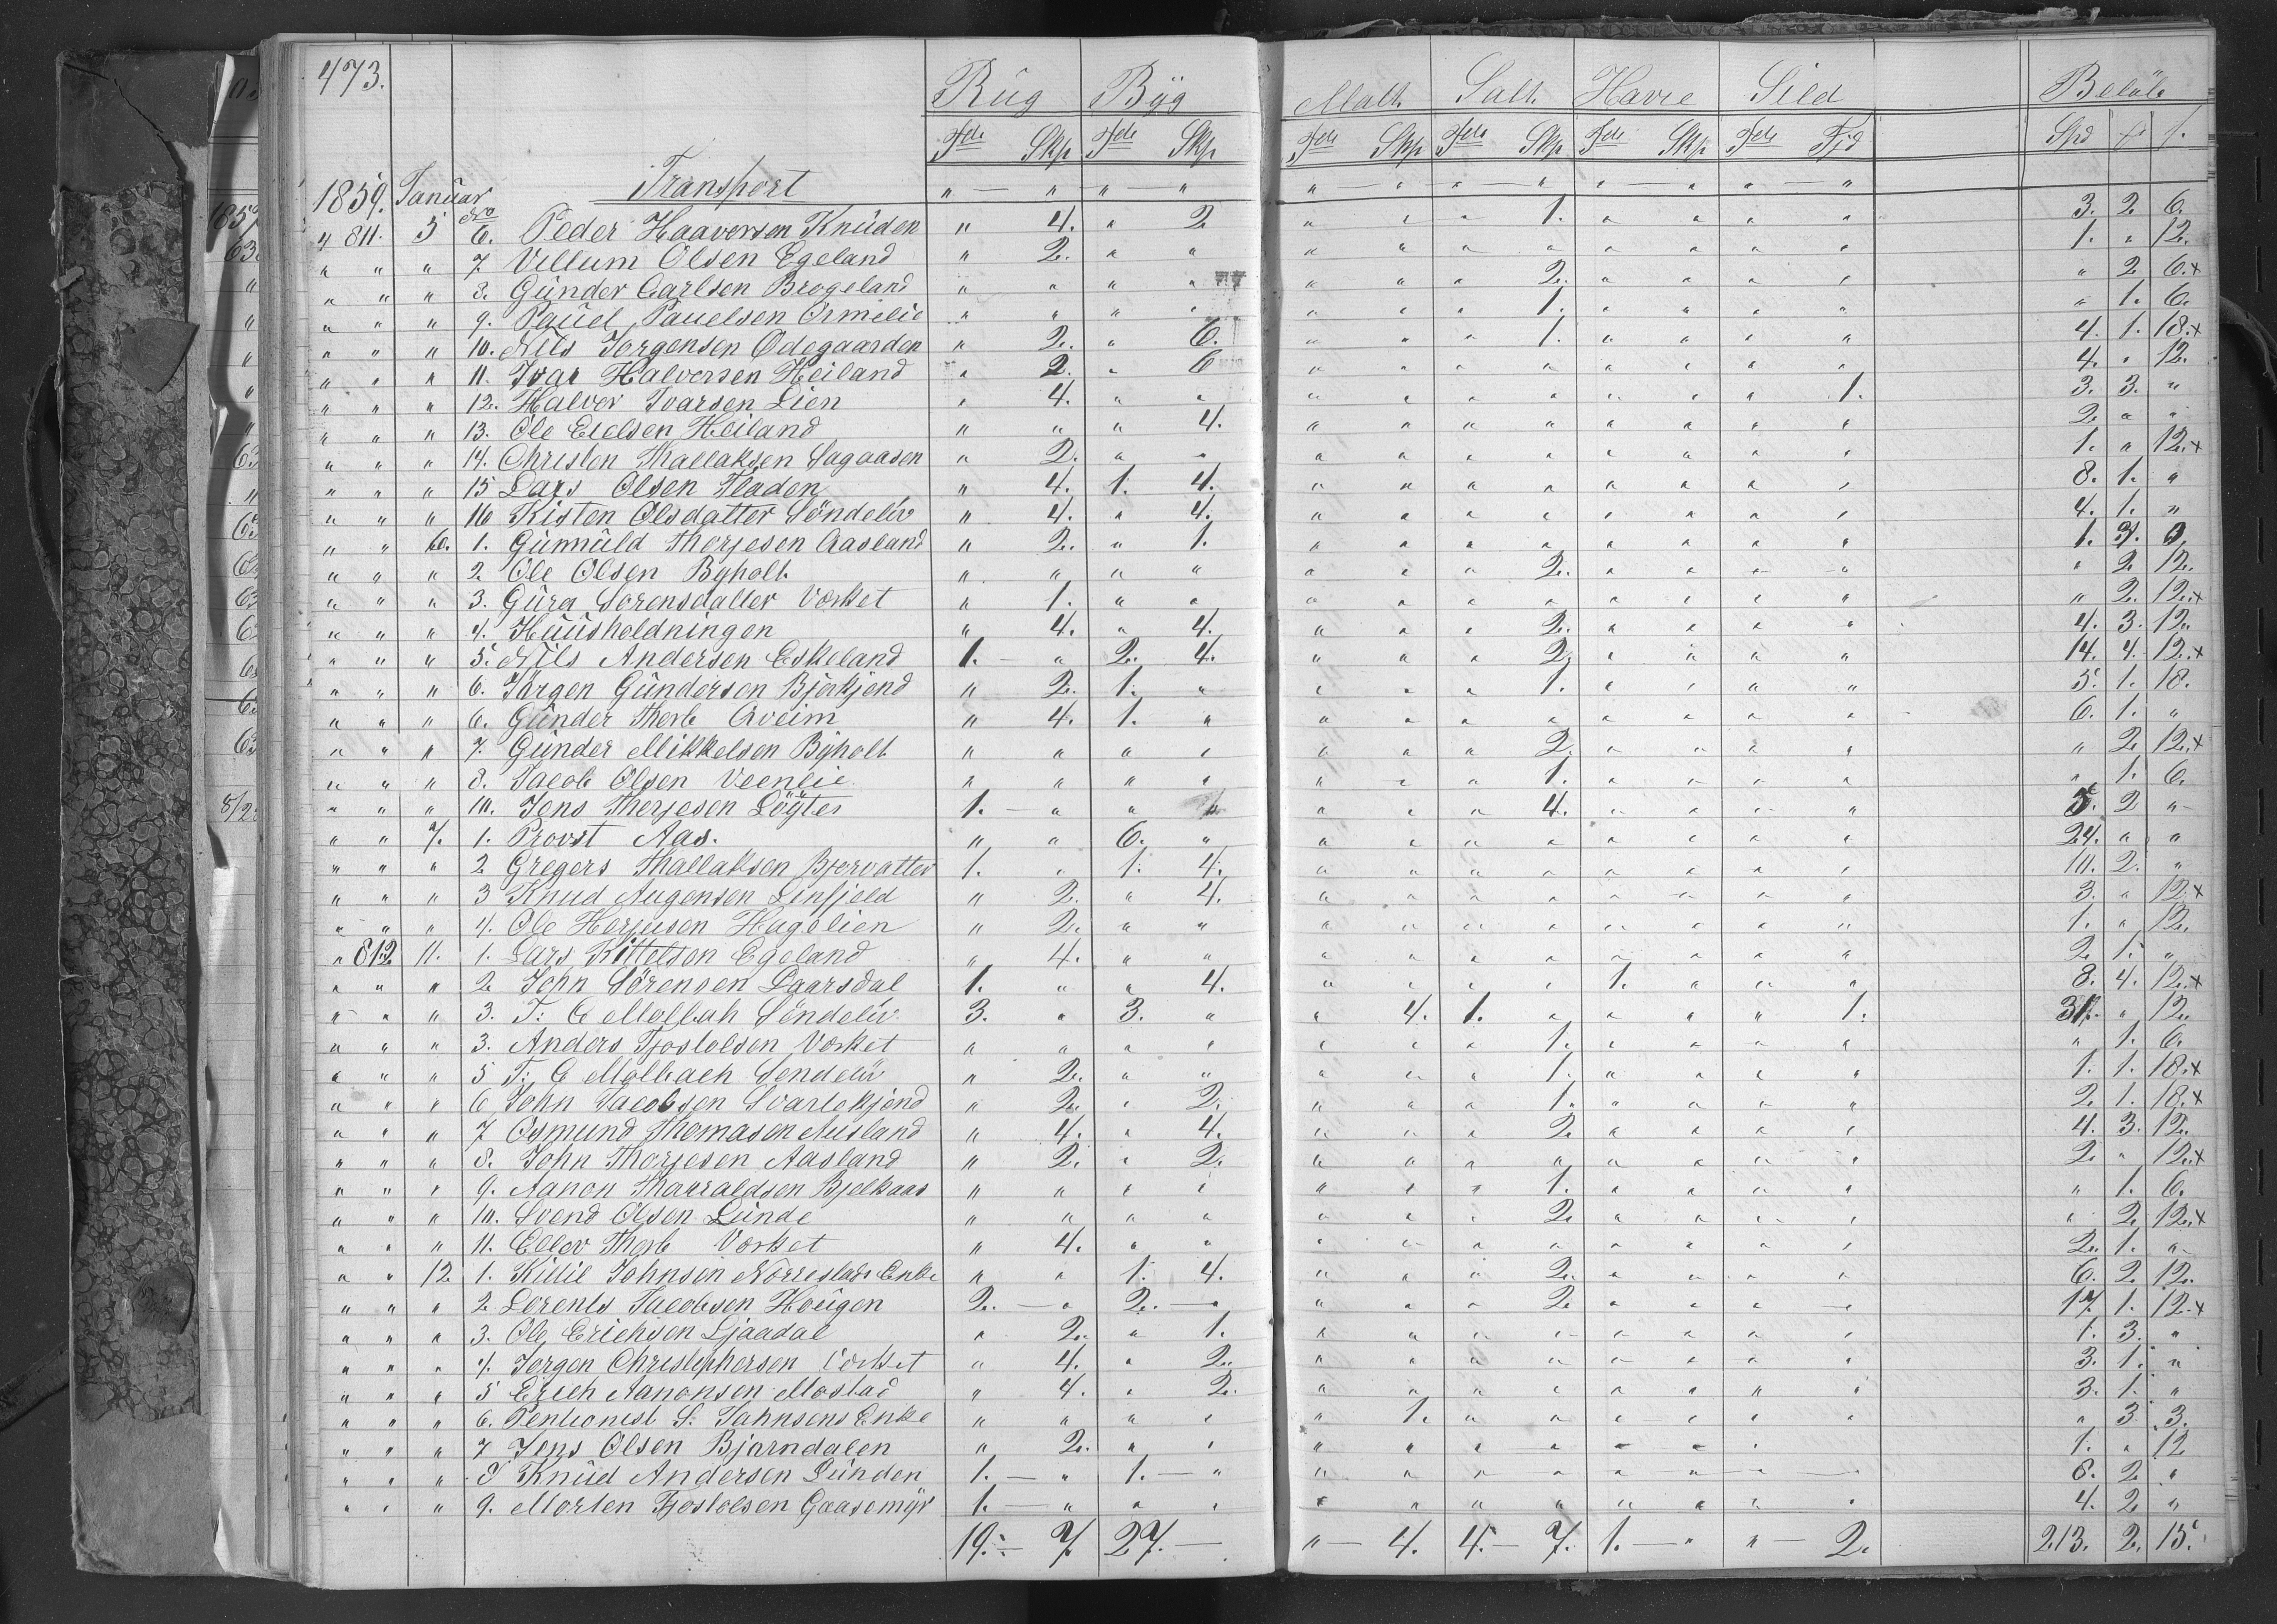 473.
Rüg Byg Malt. Salt. Havre Sild Beløb
Tdr Skp Tdr Skp Tdr Skp Tdr Skp Tdr Skp Tdr Fjd Spd
1859. Januar Transport " — " " — " " — " " — " " — " " — "
4 811. 5 No 6. Peder Haaversen Knüden " 4. " 2 " " " 1. " " " " 3. 2. 6.
" " " 7. Villum Olsen Egeland " 2. " " " " " " " " " " 1. " 12.
" " " 8. Günder Carlsen Brogeland " " " " " " " 2. " " " " " 2 6.+
" " " 9. Pauel Pauelsen Ormelie " " " " " " " 1. " " " " " 1. 6.
" " " 10. Nils Jorgensen Ödegaarden " 2. " 6. " " " 1. " " " " 4. 1. 18.+
" " " 11. Ivar Halversen Heiland " 2. " 6 " " " " " " " " 4. " 12.
" " " 12. Halvor Ivarsen Lien " 4. " " " " " " " " " 1. 3. 3. "
" " " 13. Ole Eielsen Heiland " " " 4. " " " " " " " " 2. " "
" " " 14. Christen Thallaksen Sagaasen " 2. " " " " " " " " " " 1. " 12.+
" " " 15 Lars Olsen Fladen " 4. 1. 4. " " " " " " " " 8. 1. "
" " " 16 Kisten Olsdatter Söndelöv " 4. " 4. " " " " " " " " 4. 1. "
" " 6. 1. Gunnüld Thorjesen Aasland " 2. " 1. " " " " " " " " 1. 3.
" " " 2. Ole Olsen Byholt " " " " " " " 2. " " " " " 2 12.
" " " 3. Güra Sorensdatter Værket " 1. " " " " " " " " " " " 2. 12.+
" " " 4. Huüsholdningen " 4. " 4. " " " 2. " " " " 4. 3. 12.
" " " 5. Nils Andersen Eskeland 1. — " 2. 4. " " " 2. " " " " 14. 4. 12.+
" " " 6. Jörgen Gündersen Bjerkjend " 2. 1. " " " " 1. " " " " 5. 1. 18.
" " " 6. Günder Therb Aveim " 4. 1. " " " " " " " " " 6. 1. "
" " " 7. Günder Mikkelsen Byholt " " " " " " " 2. " " " " " 2 12.+
" " " 8. Jacob Olsen Veenlie " " " " " " " 1. " " " " " 1. 6.
" " " 10. Jens Therjesen Lögter 1. — " " " " " " 4. " " " " 5. 2 "
" " 7. 1. Provst Aas. " " 6. " " " " " " " " " 24. " "
" " " 2 Gregers Thallaksen Bjorvatten 1. " 1. 4. " " " " " " " " 10. 2. "
" " " 3 Knud Augensen Linfjeld " 2. " 4. " " " " " " " " 3. " 12.+
" " " 4. Ole Herjusen Hagelien " 2. " " " " " " " " " " 1. " 12.
" 812 11. 1. Lars Kittelsen Egeland " 4. " " " " " " " " " " 2. 1. "
" " " 2. John Sörensen Laarsdal 1. " " 4. " " " " 1. " " " 8. 4. 12.+
" " " 3. T: C Mollbah Söndelöv 3. " 3. " " 4. 1. " " " " 1. 31. " 12.
" " " 3. Anders Tjostolsen Værket " " " " " " " 1. " " " " " 1. 6.
" " " 5 T: C Mollbach Sendelöv " 2. " " " " " 1. " " " " 1. 1. 18.+
" " " 6 John Jacobsen Svartekjend " 2. " 2. " " " 1. " " " " 2. 1. 18.+
" " " 7 Osmund Thomasen Ausland " 4. " 4. " " " 2 " " " " 4. 3. 12.
" " " 8. John Thorjesen Aasland " 2. " 2. " " " " " " " " 2. " 12.+
" " " 9. Aanon Tharaldsen Bjelkaas " " " " " " " 1. " " " " " 1. 6.
" " " 10. Svend Olsen Lünde " " " " " " " 2. " " " " " 2 12.+
" " " 11. Ellev Therb Værket " 4. " " " " " " " " " " 2. 1. "
" " 12 1. Killie Johnsen Norrestads Enke " " 1. 4. " " " 2. " " " " 6. 2. 12.
" " " 2. Lorents Jacobsen Hougen 2. — " 2. — " " " " 2 " " " " 17. 1. 12.+
" " " 3. Ole Erichsen Ljaadal " 2. " 1. " " " " " " " " 1. 3. "
" " " 4. Jorgen Christephersen Værket " 4. " 2. " " " " " " " " 3. 1. "
" " " 5 Erich Aanonsen Mostad " 4. " 2. " " " " " " " " 3. 1. "
" " " 6. Pentionist S: Jahnsens Enke " " " " " 1. " " " " " " " 3 3.
" " " 7 Jens Olsen Bjorndalen " 2. " " " " " " " " " 1. " 12
" " " 8 Knüd Andersen Lünden 1. — " 1. — " " " " " " " " " 8. 2 "
" " " 9. Morten Tjostolsen Gaasemyr 1. — " " " " " " " " " " " 4. 2. "
19. — 7. 27. — " — 4. 4. — 7. 1. — " " — 2. 213. 2. 15.